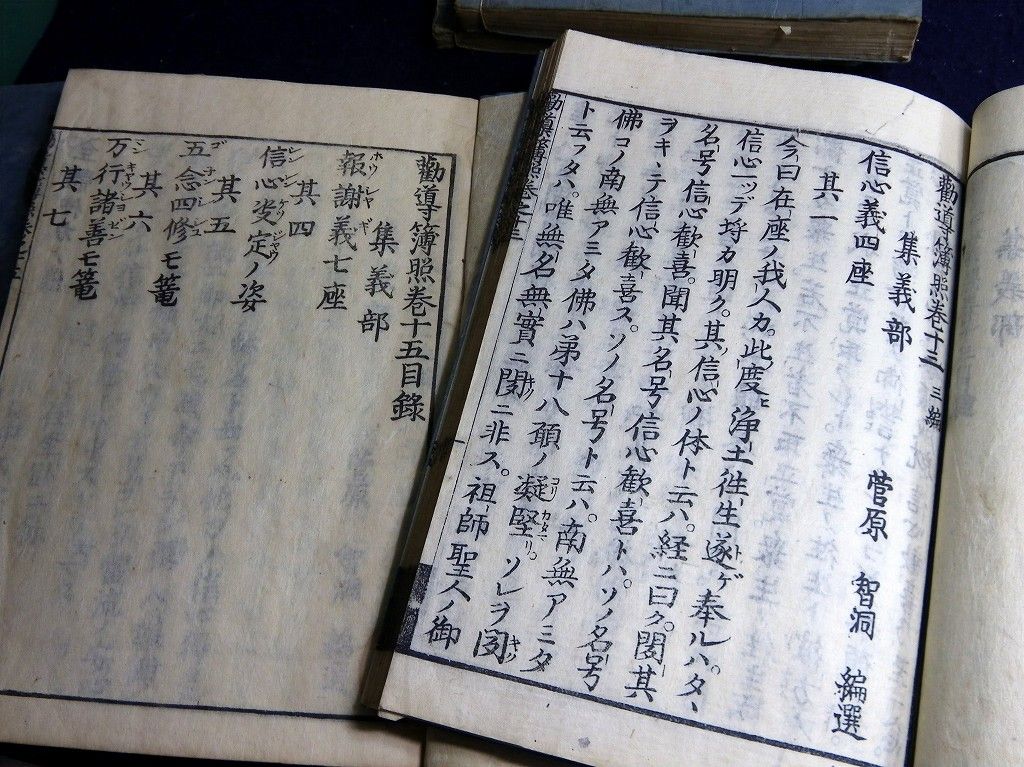 勸導簿照巻十三 三編
集義部 菅原 智洞 編選
信心義四座
其一
今曰在座ノ我人カ。此度淨土徃生遂ゲ奉ルハ。タヽ
信心一ッデ埒カ明ク。其信心ノ体ト云ハ。経ニ曰ク。聞其
名号信心歓喜。聞其名号信心歓喜トハ。ソノ名号
ヲキヽテ信心歓喜ス。ソノ名号ト云ハ。南無アミタ
佛コノ南無アミタ佛ハ弟十八願ノ凝堅リ。ソレヲ聞
ト云フタハ。唯無名無實ニ聞ニ非ス。祖師聖人ノ御
勸導簿照巻十五目錄
集義部
報謝義七座
其四
信心决定ノ姿
其五
五念四修モ篭
其六
万行諸善モ篭
其七